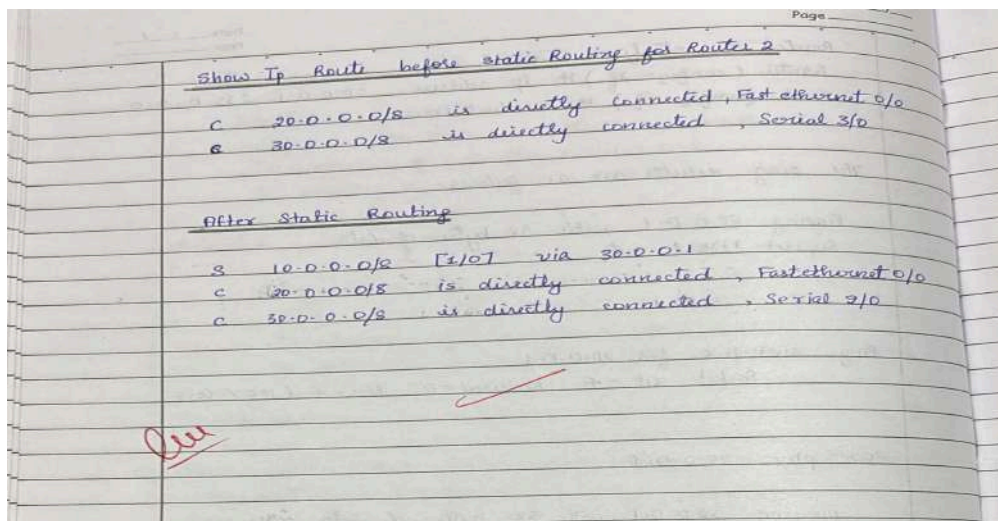 Page
Show Ip Route before static Routing for Router 2
C 20.0.0.0/8 is directly connected, Fast ethernet 0/0
C 30.0.0.0/8 is directly connected, Serial 3/0
After Static Routing
S 10.0.0.0/8 [1/0] via 30.0.0.1
C 20.0.0.0/8 is directly connected, Fastethernet 0/0
C 30.0.0.0/8 is directly connected, Serial 2/0